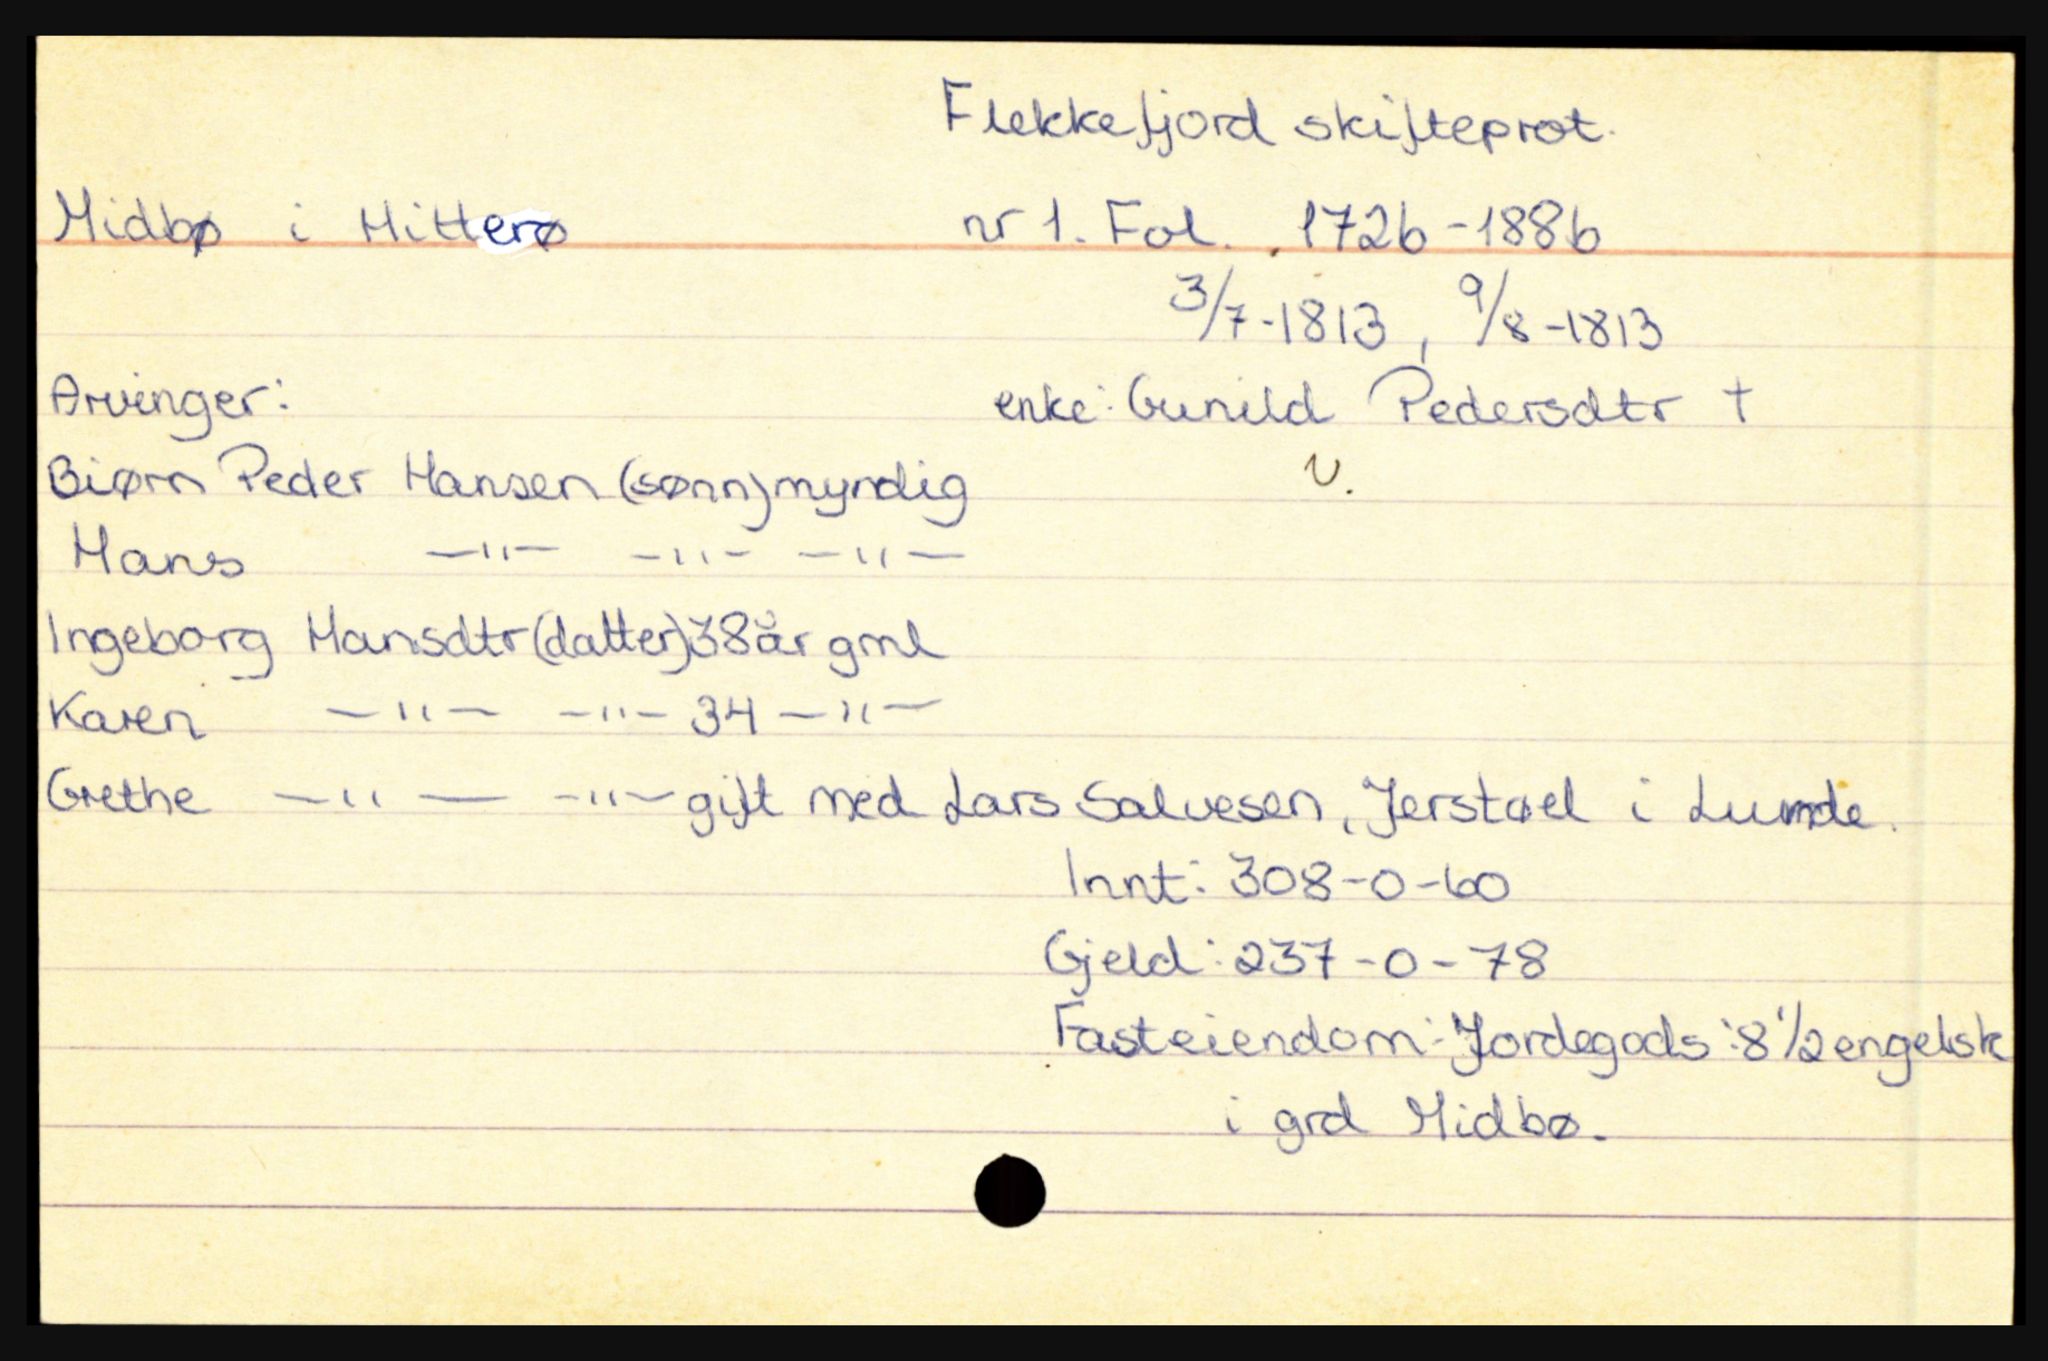 Flekkefjord skifteprot.
Midbø i Hitterø nr 1. Fol. 172b-188b
3/7-1813, 9/8-1813
Arvinger: enke: Gunild Pedersdtr †
Biørn Peder Hansen (sønn) myndig v.
Hans —"— —"— —"—
Ingeborg Hansdtr (datter) 38 år gml
Karen —"— —"— 34 —"—
Grethe —"— —"— gift med Lars Salvesen, Jerstøel i Lunde.
Innt: 308-0-60
Gjeld: 237-0-78
Fasteiendom: Jordegods: 8 1/2 engelsk
i grd Midbø.